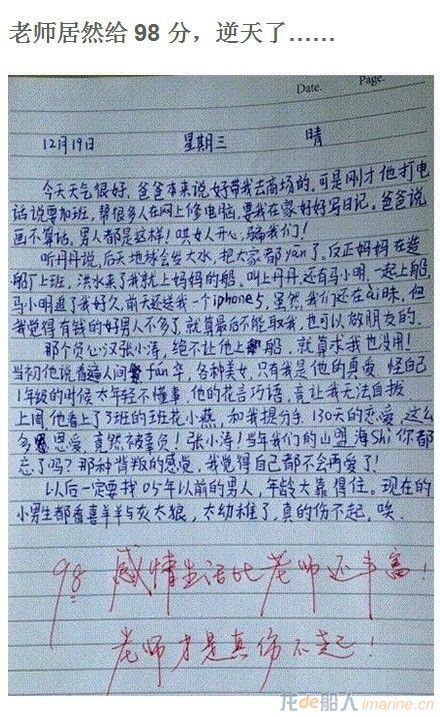 老师居然给 98 分，逆天了……
Date.
Page.
12月19日 星期三 晴
今天天气很好，爸爸本来说好带我去商场的，可是刚才他打电
话说要加班，帮很多人在网上修电脑，要我在家好好写日记。爸爸说
画不算话，男人都是这样！哄女人开心，骗我们！
听丹丹说，后天地球会发大水，把大家都yān了，反正妈妈在造
船厂上班，洪水来了我就上妈妈的船，叫上丹丹还有马小明，一起上船，
马小明追了我好久，前天还送我一个iphone5，虽然我们还在ài昧，但
我觉得有钱的好男人不多了，就算最后不能取我，也可以做朋友的。
那个负心汉张小涛，绝不让他上船，就算求我也没用！
当初他说看遍人间fán华，各种美女，只有我是他的真爱，怪自己
1年级的时候太年轻不懂事，他的花言巧语，竟让我无法自拔，
上周他看上了3班的班花小燕，和我提分手，130天的恋爱，这么
多恩爱，竟然被辜负！张小涛！当年我们的山盟海Shì你都
忘了吗？那种背叛的感觉，我觉得自己都不会再爱了！
以后一定要找05年以前的男人，年龄大靠得住。现在的
小男生都看喜羊羊与灰太狼，太幼稚了，真的伤不起，唉。
98 感情生活比老师还丰富！
老师才是真伤不起！
龙de船人 imarine.cn